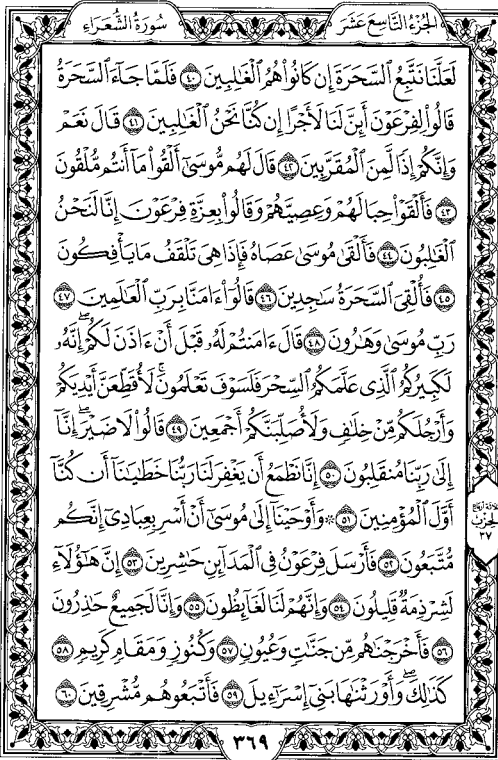 الجزء التاسع عشر
سورة الشعراء
لَعَلَّنَا نَتَّبِعُ ٱلسَّحَرَةَ إِن كَانُوا۟ هُمُ ٱلْغَٰلِبِينَ ٤٠ فَلَمَّا جَآءَ ٱلسَّحَرَةُ
قَالُوا۟ لِفِرْعَوْنَ أَئِنَّ لَنَا لَأَجْرًا إِن كُنَّا نَحْنُ ٱلْغَٰلِبِينَ ٤١ قَالَ نَعَمْ
وَإِنَّكُمْ إِذًا لَّمِنَ ٱلْمُقَرَّبِينَ ٤٢ قَالَ لَهُم مُّوسَىٰٓ أَلْقُوا۟ مَآ أَنتُم مُّلْقُونَ
٤٣ فَأَلْقَوْا۟ حِبَالَهُمْ وَعِصِيَّهُمْ وَقَالُوا۟ بِعِزَّةِ فِرْعَوْنَ إِنَّا لَنَحْنُ
ٱلْغَٰلِبُونَ ٤٤ فَأَلْقَىٰ مُوسَىٰ عَصَاهُ فَإِذَا هِىَ تَلْقَفُ مَا يَأْفِكُونَ
٤٥ فَأُلْقِىَ ٱلسَّحَرَةُ سَٰجِدِينَ ٤٦ قَالُوٓا۟ ءَامَنَّا بِرَبِّ ٱلْعَٰلَمِينَ ٤٧
رَبِّ مُوسَىٰ وَهَٰرُونَ ٤٨ قَالَ ءَامَنتُمْ لَهُۥ قَبْلَ أَنْ ءَاذَنَ لَكُمْ ۖ إِنَّهُۥ
لَكَبِيرُكُمُ ٱلَّذِى عَلَّمَكُمُ ٱلسِّحْرَ فَلَسَوْفَ تَعْلَمُونَ ۚ لَأُقَطِّعَنَّ أَيْدِيَكُمْ
وَأَرْجُلَكُم مِّنْ خِلَٰفٍ وَلَأُصَلِّبَنَّكُمْ أَجْمَعِينَ ٤٩ قَالُوا۟ لَا ضَيْرَ ۖ إِنَّآ
إِلَىٰ رَبِّنَا مُنقَلِبُونَ ٥٠ إِنَّا نَطْمَعُ أَن يَغْفِرَ لَنَا رَبُّنَا خَطَٰيَٰنَآ أَن كُنَّآ
أَوَّلَ ٱلْمُؤْمِنِينَ ٥١ ۞ وَأَوْحَيْنَآ إِلَىٰ مُوسَىٰٓ أَنْ أَسْرِ بِعِبَادِىٓ إِنَّكُم
مُّتَّبَعُونَ ٥٢ فَأَرْسَلَ فِرْعَوْنُ فِى ٱلْمَدَآئِنِ حَٰشِرِينَ ٥٣ إِنَّ هَٰٓؤُلَآءِ
لَشِرْذِمَةٌ قَلِيلُونَ ٥٤ وَإِنَّهُمْ لَنَا لَغَآئِظُونَ ٥٥ وَإِنَّا لَجَمِيعٌ حَٰذِرُونَ
٥٦ فَأَخْرَجْنَٰهُم مِّن جَنَّٰتٍ وَعُيُونٍ ٥٧ وَكُنُوزٍ وَمَقَامٍ كَرِيمٍ ٥٨
كَذَٰلِكَ ۖ وَأَوْرَثْنَٰهَا بَنِىٓ إِسْرَٰٓءِيلَ ٥٩ فَأَتْبَعُوهُم مُّشْرِقِينَ ٦٠
الحزب
٣٧
٣٦٩